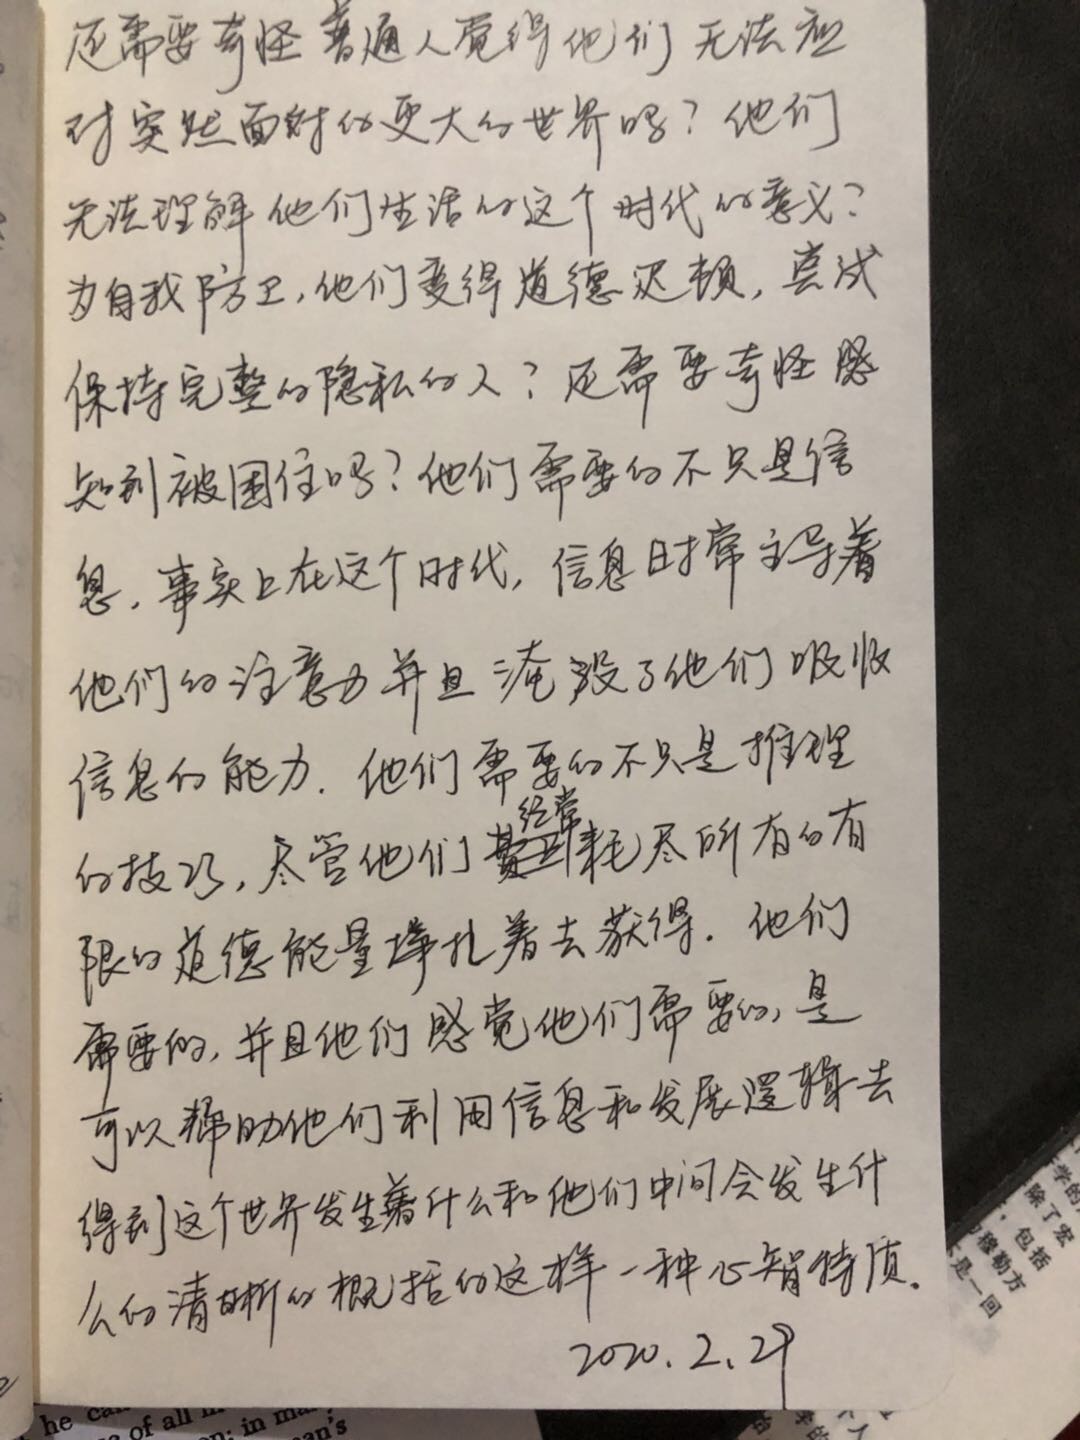 还需要奇怪普通人觉得他们无法应
对突然面对的更大的世界吗？他们
无法理解他们生活的这个时代的意义？
为自我防卫，他们变得道德迟顿，尝试
保持完整的隐私的人？还需要奇怪感
知到被困住吗？他们需要的不只是信
息，事实上在这个时代，信息时常主导着
他们的注意力并且淹没了他们吸收
信息的能力．他们需要的不只是推理
的技巧，尽管他们经常耗尽所有的有
限的道德能量挣扎着去获得．他们
需要的，并且他们感觉他们需要的，是
可以帮助他们利用信息和发展逻辑去
得到这个世界发生着什么和他们中间会发生什
么的清晰的概括的这样一种心智特质．
2020.2.29
学的
除了宏
，包括
穆勒方
是一回
he can
of all
in ma
man's